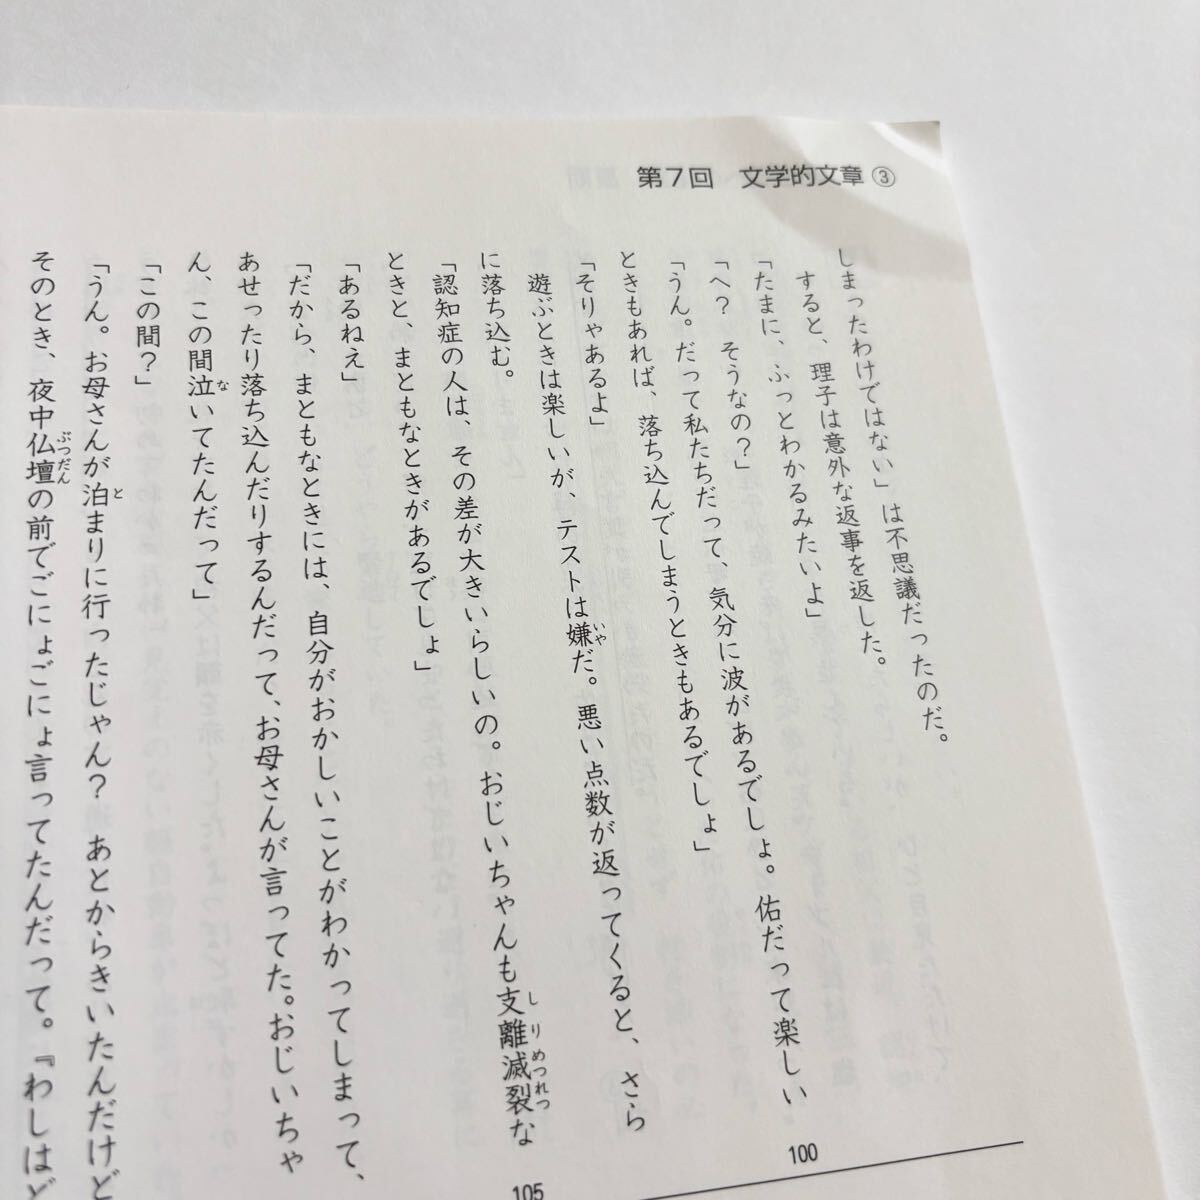 第7回　文学的文章③
しまったわけではない」は不思議だったのだ。
すると、理子は意外な返事を返した。
「たまに、ふっとわかるみたいよ」
「へ？　そうなの？」
「うん。だって私たちだって、気分に波があるでしょ。佑だって楽しい
ときもあれば、落ち込んでしまうときもあるでしょ」
「そりゃあるよ」
遊ぶときは楽しいが、テストは嫌だ。悪い点数が返ってくると、さら
いや
に落ち込む。
「認知症の人は、その差が大きいらしいの。おじいちゃんも支離滅裂な
しりめつれつ
ときと、まともなときがあるでしょ」
「あるねえ」
「だから、まともなときには、自分がおかしいことがわかってしまって、
あせったり落ち込んだりするんだって、お母さんが言ってた。おじいちゃ
ん、この間泣いてたんだって」
な
「この間？」
「うん。お母さんが泊まりに行ったじゃん？　あとからきいたんだけど
と
そのとき、夜中仏壇の前でごにょごにょ言ってたんだって。『わしはど
ぶつだん
100
105